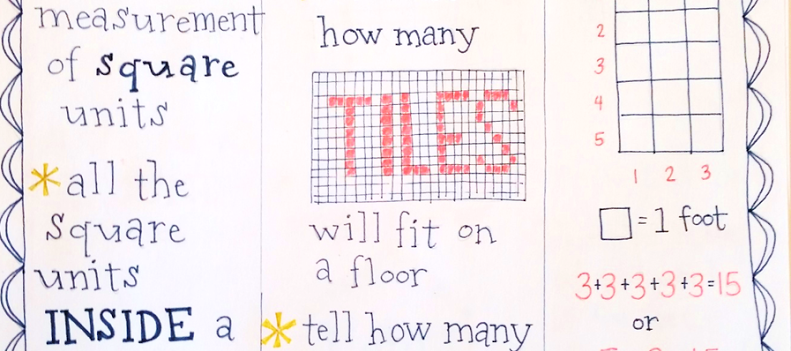 measurement
of square
units
*all the
square
units
INSIDE a
how many
TILES
will fit on
a floor
*tell how many
2
3
4
5
1 2 3
□ = 1 foot
3+3+3+3+3=15
or